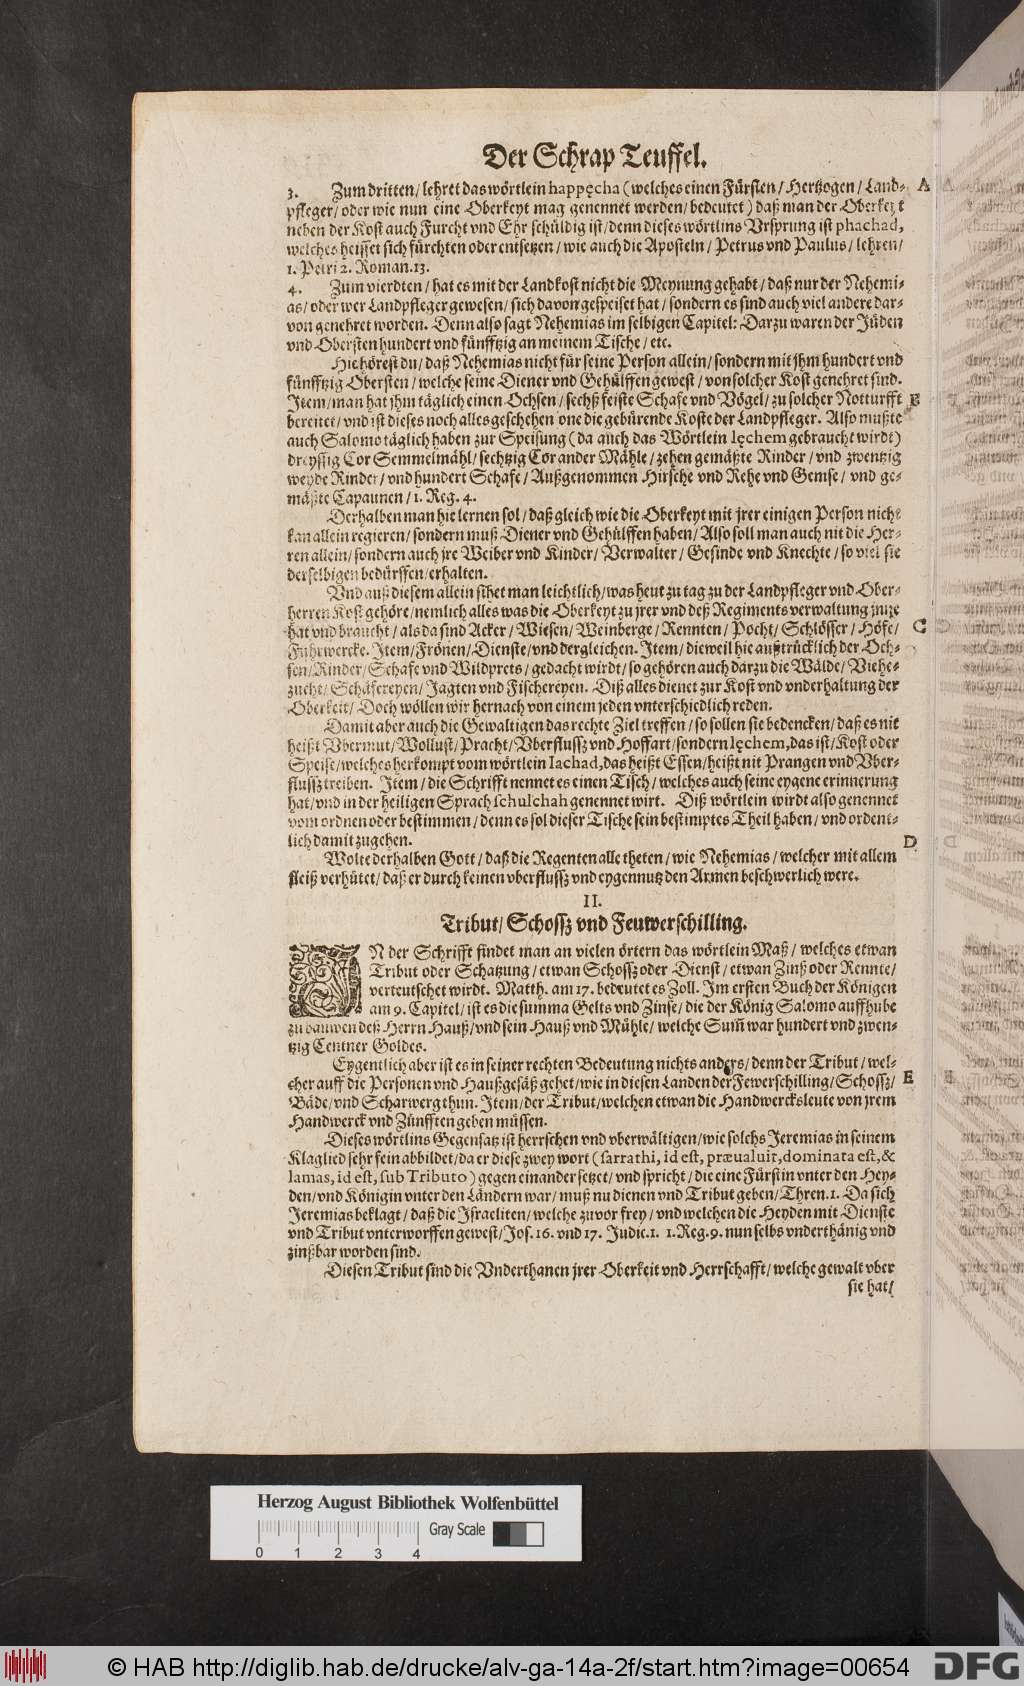 Der Schrap Teuffel.
3. Zum dritten / lehret das wörtlein happęcha (welches einen Fürsten / Hertzogen / Land- A
pfleger / oder wie nun eine Oberkeyt mag genennet werden / bedeutet) daß man der Oberkeyt
neben der Kost auch Furcht vnd Ehr schüldig ist / denn dieses wörtlins Vrsprung ist phachad,
welches heisset sich fürchten oder entsetzen / wie auch die Aposteln / Petrus vnd Paulus / lehren /
1. Petri 2. Roman. 13.
4. Zum vierdten / hat es mit der Landkost nicht die Meynung gehabt / daß nur der Nehemi-
as / oder wer Landpfleger gewesen / sich davon gespeiset hat / sondern es sind auch viel andere dar-
von genehret worden. Denn also sagt Nehemias im selbigen Capitel: Darzu waren der Jüden
vnd Obersten hundert vnd fünfftzig an meinem Tische / etc.
Hie hörest du / daß Nehemias nicht für seine Person allein / sondern mit jhm hundert vnd
fünfftzig Obersten / welche seine Diener vnd Gehülffen gewest / von solcher Kost genehret sind.
Item / man hat jhm täglich einen Ochsen / sechß feiste Schafe vnd Vögel / zu solcher Notturfft B
bereitet / vnd ist dieses noch alles geschehen one die gebürende Koste der Landpfleger. Also mußte
auch Salomo täglich haben zur Speisung (da auch das Wörtlein lęchem gebraucht wirdt)
dreyssig Cor Semmelmähl / sechtzig Cor ander Mähle / zehen gemäßte Rinder / vnd zwentzig
weyde Rinder / vnd hundert Schafe / Außgenommen Hirsche vnd Rehe vnd Gemse / vnd ge-
mäßte Capaunen / 1. Reg. 4.
Derhalben man hie lernen sol / daß gleich wie die Oberkeyt mit jrer einigen Person nicht
kan allein regieren / sondern muß Diener vnd Gehülffen haben / Also soll man auch nit die Her-
ren allein / sondern auch jre Weiber vnd Kinder / Verwalter / Gesinde vnd Knechte / so viel sie
derselbigen bedürffen / erhalten.
Vnd auß diesem allein sihet man leichtlich / was heut zu tag zu der Landpfleger vnd Ober-
herren Kost gehöre / nemlich alles was die Oberkeyt zu jrer vnd deß Regiments verwaltung jnne
hat vnd braucht / als da sind Acker / Wiesen / Weinberge / Rennten / Pocht / Schlösser / Höfe / C
Fuhrwercke. Item / Frönen / Dienste / vnd dergleichen. Item / dieweil hie außtrücklich der Och-
sen / Rinder / Schafe vnd Wildprets / gedacht wirdt / so gehören auch darzu die Wälde / Viehe-
zucht / Schäfereyen / Jagten vnd Fischereyen. Diß alles dienet zur Kost vnd vnderhaltung der
Oberkeit / Doch wöllen wir hernach von einem jeden vnterschiedlich reden.
Damit aber auch die Gewaltigen das rechte Ziel treffen / so sollen sie bedencken / daß es nit
heißt Vbermut / Wollust / Pracht / Vberflussz vnd Hoffart / sondern lęchem, das ist / Kost oder
Speise / welches herkompt vom wörtlein lachad, das heißt Essen / heißt nit Prangen vnd Vber-
flussz treiben. Item / die Schrifft nennet es einen Tisch / welches auch seine eygene erinnerung
hat / vnd in der heiligen Sprach schulchah genennet wirt. Diß wörtlein wirdt also genennet
vom ordnen oder bestimmen / denn es sol dieser Tische sein bestimptes Theil haben / vnd ordent-
lich damit zugehen. D
Wolte derhalben Gott / daß die Regenten alle theten / wie Nehemias / welcher mit allem
fleiß verhütet / daß er durch keinen vberflussz vnd eygennutz den Armen beschwerlich were.
II.
Tribut / Schossz vnd Feuwerschilling.
IN der Schrifft findet man an vielen örtern das wörtlein Maß / welches etwan
Tribut oder Schatzung / etwan Schossz oder Dienst / etwan Zinß oder Rennte /
verteutschet wirdt. Matth. am 17. bedeutet es Zoll. Im ersten Buch der Königen
am 9. Capitel / ist es die summa Gelts vnd Zinse / die der König Salomo auffhube
zu bauwen deß Herrn Hauß / vnd sein Hauß vnd Mühle / welche Sum̃ war hundert vnd zwen-
tzig Centner Goldes.
Eygentlich aber ist es in seiner rechten Bedeutung nichts anders / denn der Tribut / wel-
cher auff die Personen vnd Haußgesäß gehet / wie in diesen Landen der Fewerschilling / Schossz / E
Bäde / vnd Scharwerg thun. Item / der Tribut / welchen etwan die Handwercksleute von jrem
Handwerck vnd Zünfften geben müssen.
Dieses wörtlins Gegensatz ist herrschen vnd vberwältigen / wie solchs Jeremias in seinem
Klaglied sehr fein abbildet / da er diese zwey wort (sarrathi, id est, præualuit, dominata est, &
lamas, id est, sub Tributo) gegen einander setzet / vnd spricht / die eine Fürstin vnter den Hey-
den / vnd Königin vnter den Ländern war / muß nu dienen vnd Tribut geben / Thren. 1. Da sich
Jeremias beklagt / daß die Israeliten / welche zuvor frey / vnd welchen die Heyden mit Dienste
vnd Tribut vnterworffen gewest / Jos. 16. vnd 17. Judic. 1. 1. Reg. 9. nun selbs vnderthänig vnd
zinßbar worden sind.
Diesen Tribut sind die Vnderthanen jrer Oberkeit vnd Herrschafft / welche gewalt vber
sie hat /
Herzog August Bibliothek Wolfenbüttel
Gray Scale
0 1 2 3 4
© HAB http://diglib.hab.de/drucke/alv-ga-14a-2f/start.htm?image=00654
DFG